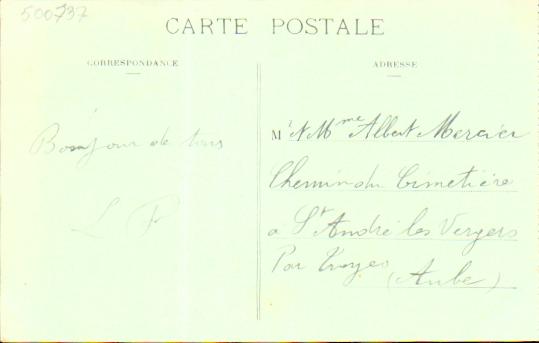 500737
CARTE POSTALE
CORRESPONDANCE
Bonjour de tous
L P
ADRESSE
Mr & Mme Albert Mercier
Chemin du Cimetière
a St André les Vergers
Par Troyes
(Aube)